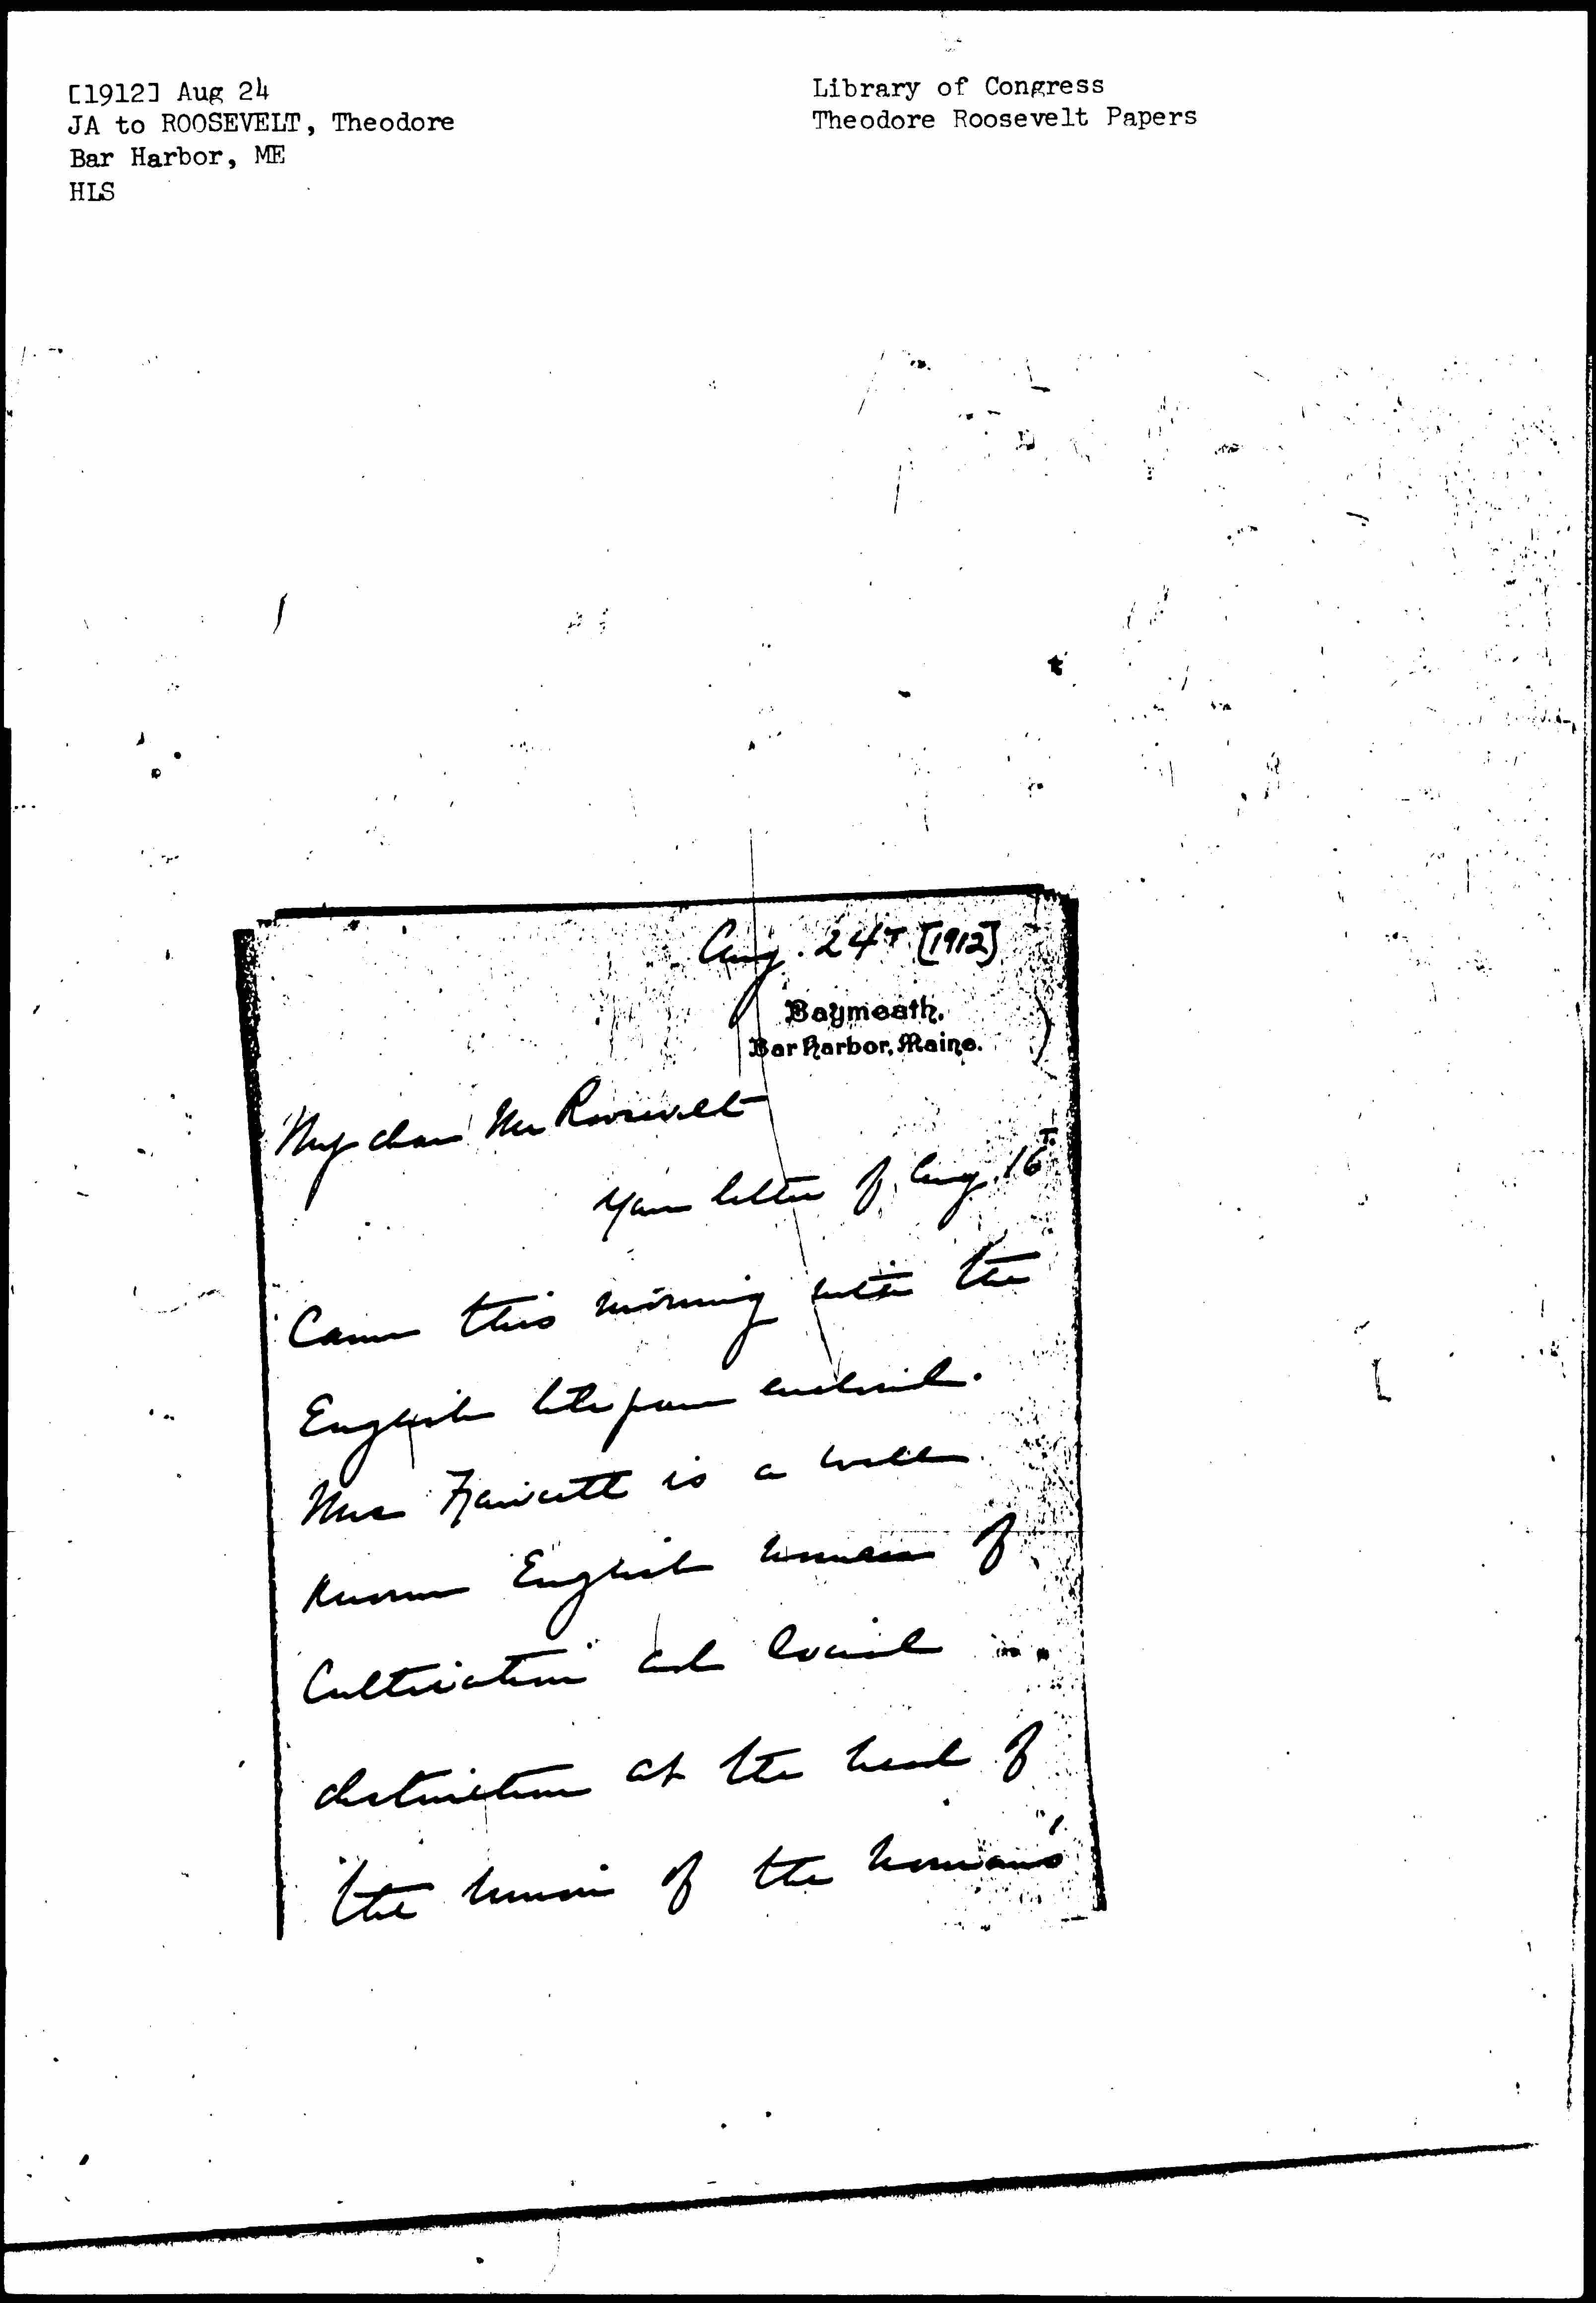 [1912] Aug 24
JA to ROOSEVELT, Theodore
Bar Harbor, ME
HLS
Library of Congress
Theodore Roosevelt Papers
Aug. 24ᵀ [1912]
Baymeath,
Bar Harbor, Maine.
My dear Mr Roosevelt
Your letter of Aug. 16ᵀ
Came this morning with the
English letter enclosed.
Mrs Fawcett is a well
known English woman of
Cultivation and social
distinction at the head of
the union of the woman's